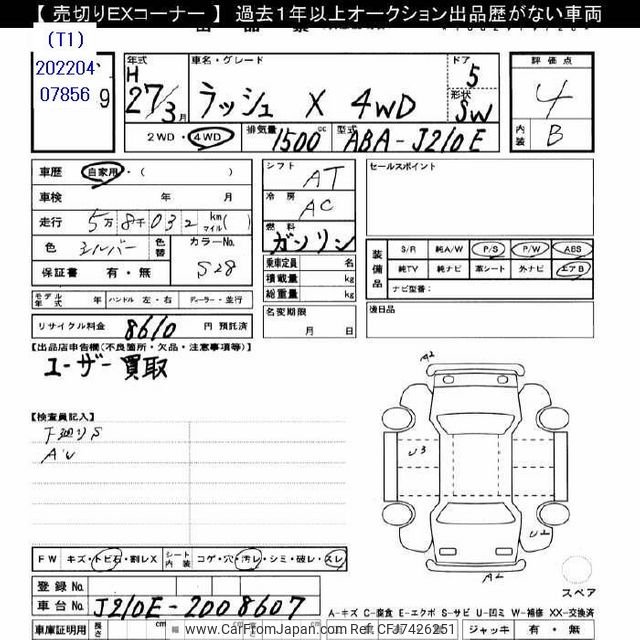 【 売切りEXコーナー 】 過去1年以上オークション出品歴がない車両
(T1)
202204
07856
9
年式
H
27/3 月
車名・グレード
ラッシュ X 4WD
ドア
5
形状
SW
2WD・4WD
排気量
1500 cc
型式
ABA-J210E
評価点
4
内装
B
車歴 自家用・( )
車検 年 月
走行 5万8千032 km マイル( )
色 シルバー 色替 カラーNo. S28
保証書 有・無
モデル年式 年 ハンドル 左・右 ディーラー・並行
リサイクル料金 8610 円 預託済
シフト AT
冷房 AC
燃料 ガソリン
乗車定員 名
積載量 kg
総重量 kg
名変期限
月 日
セールスポイント
装備品
S/R 純A/W P/S P/W ABS
純TV 純ナビ 革シート 外ナビ エアB
ナビ型番:
後日品
【出品店申告欄(不良箇所・欠品・注意事項等)】
ユーザー買取
【検査員記入】
下廻りS
AU
A2
U3
U2
A2
スペア
FW キズ・トビ石・割レX シート内装 コゲ・穴・汚レ・シミ・破レ・スレ
登録No.
車台No. J210E-2008607
A-キズ C-腐食 E-エクボ S-サビ U-凹ミ W-補修 XX-交換済
車庫証明用 長さ 幅
ジャッキ 有・無
www.CarFromJapan.com Ref:CFJ7426251